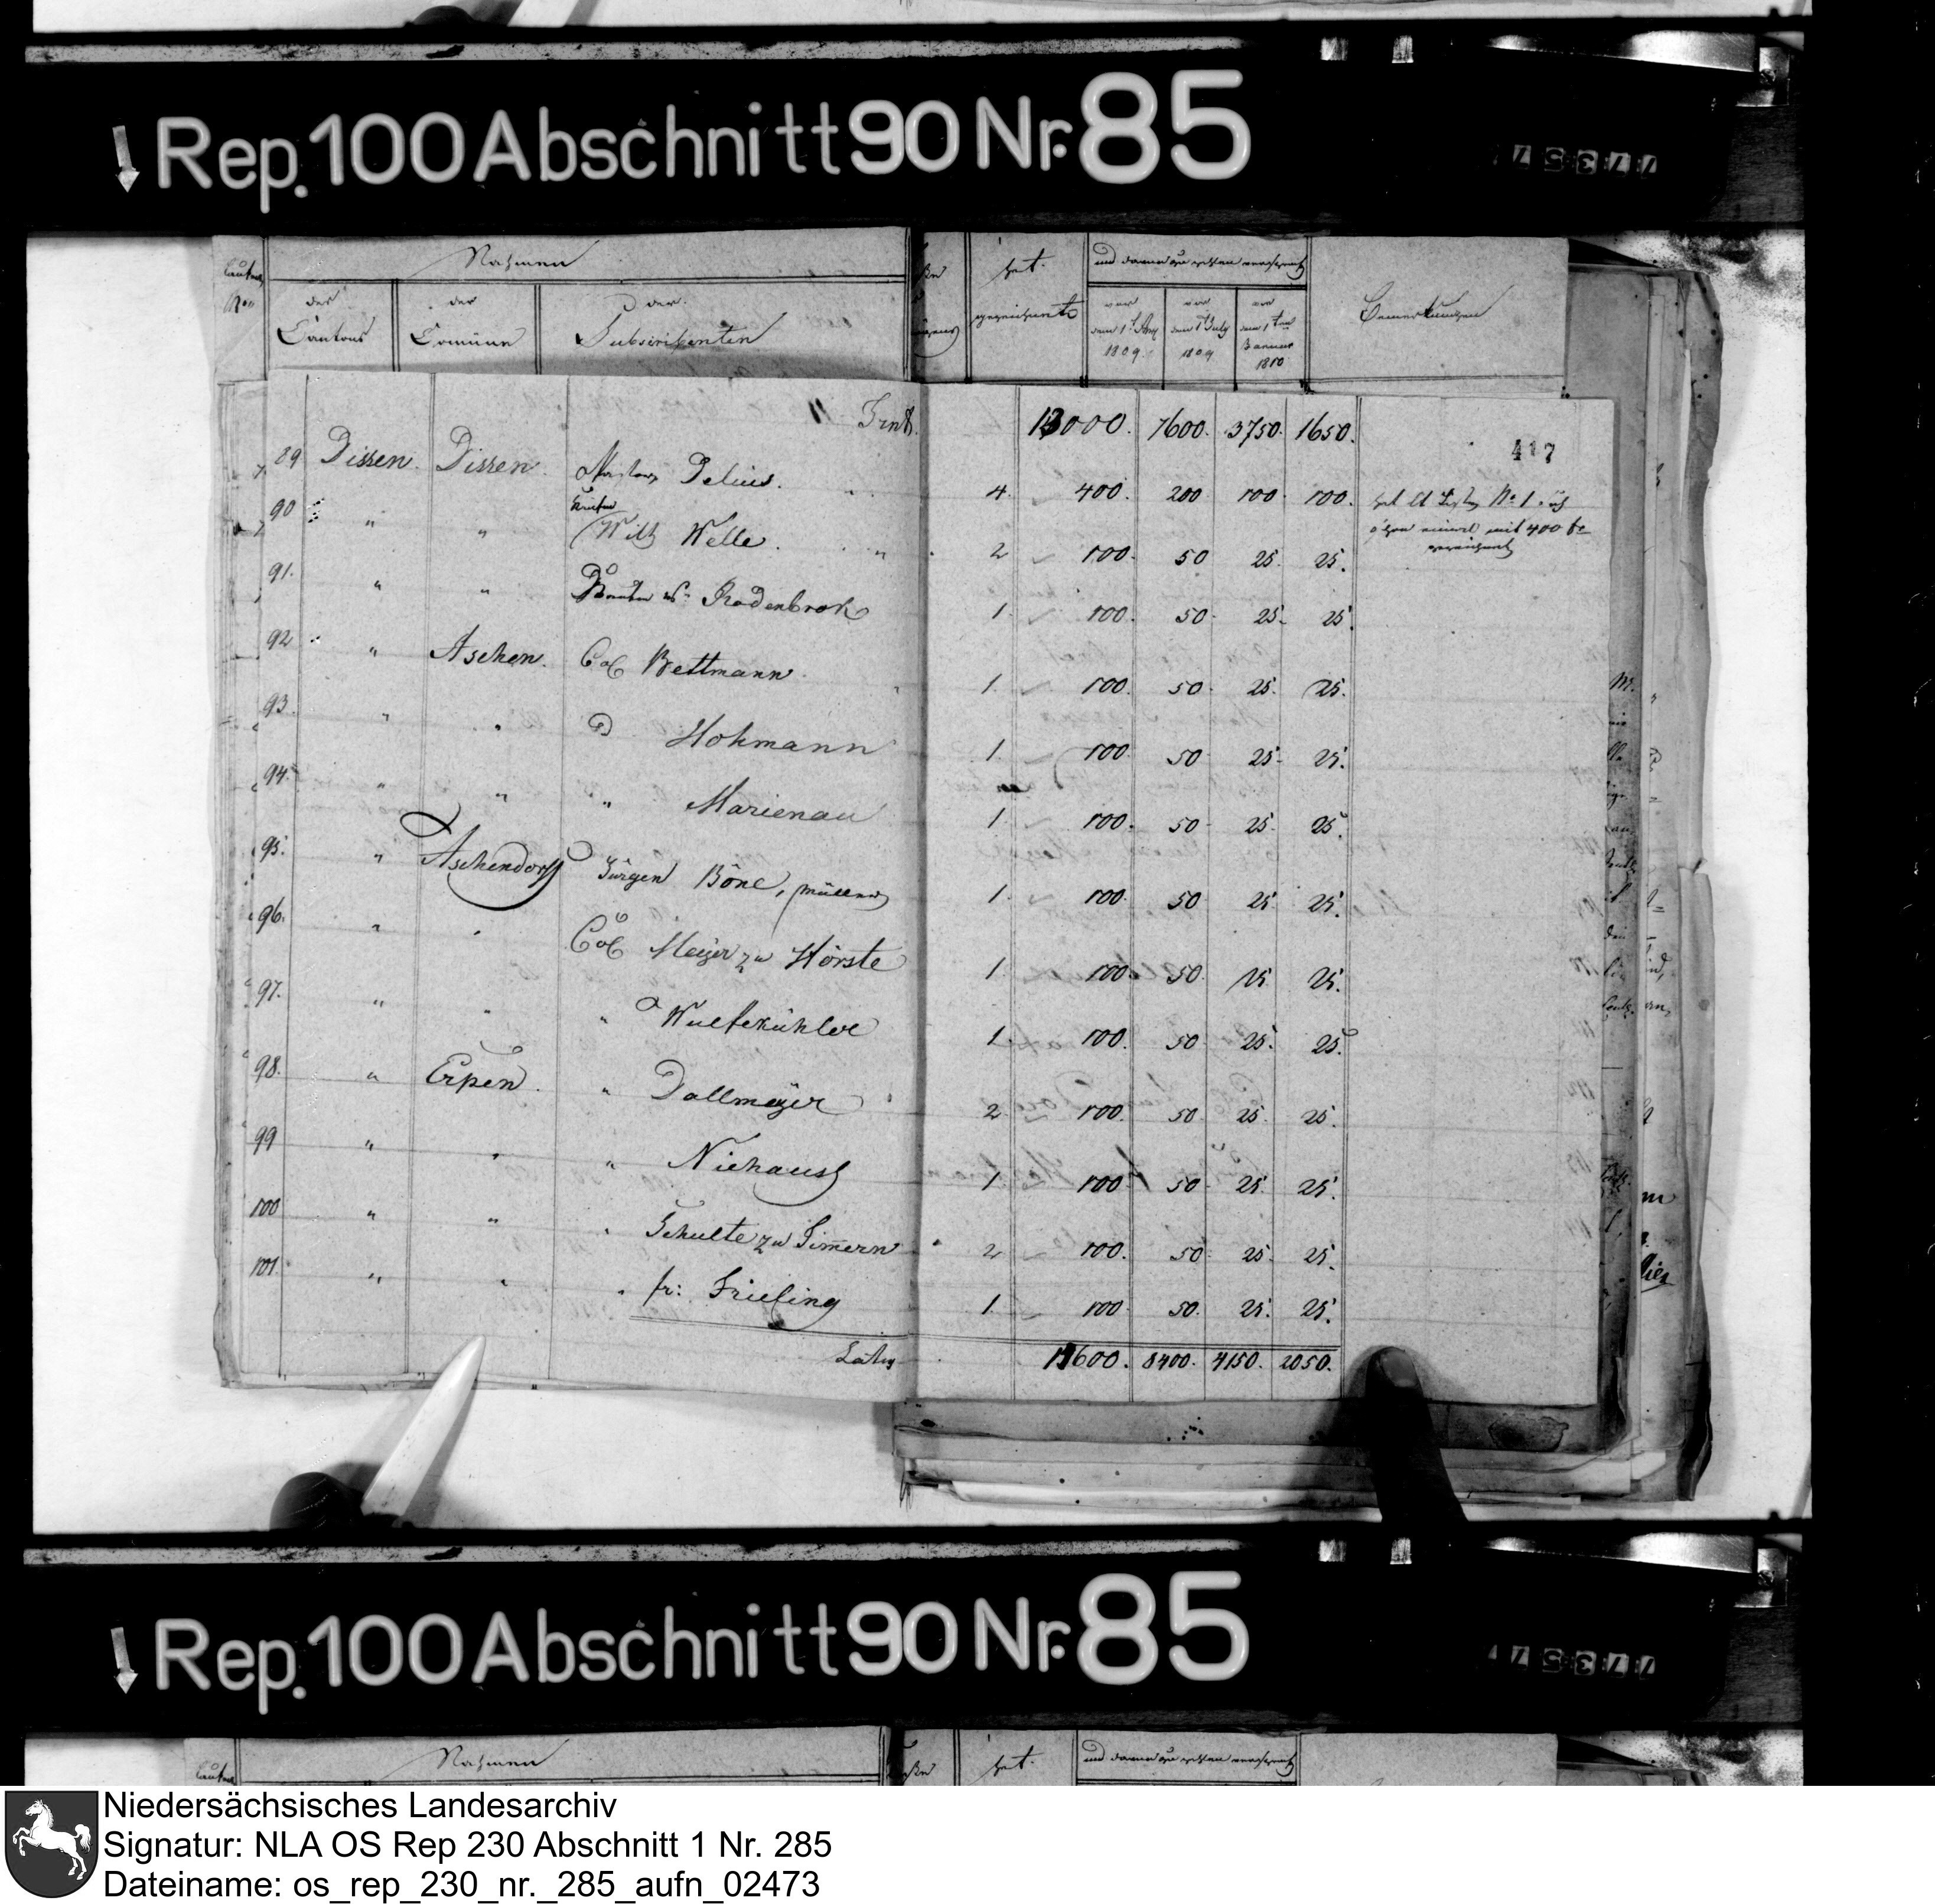 Rep. 100 Abschnitt 90 Nr. 85
77357
Nahmen
hat
und davon zu zahlen versprochen
No
des Cantons
der Comüne
der Subscribenten
gezeichnet
vor dem 1t 1809.
vor dem 1t July 1809
vor dem 1ten Januar 1810
Bemerkungen
Trnt. 13000. 7600. 3750. 1650.
417
89 Dissen. Dissen. Pastor Delius. 4. 400. 200 100. 100.
No 1 mit 400 fr gezeichnet
90 " " Wilh Welle. 2 100. 50 25. 25.
91. " " Rodenbrok 1. 100. 50. 25. 25.
92 " Aschen. Col Bettmann. 1. 100. 50. 25. 25.
93. " " D Hohmann 1. 100 50 25. 25.
94. " " " Marienau 1 100. 50 25. 25.
95. " Aschendorf Jürgen Böne, Müller 1. 100. 50 25. 25.
96. " " Col Meijer zu Hörste 1. 100. 50. 25 25.
97. " " " Wulfekühler 1. 100. 50 25. 25.
98. " Erpen. " Dallmeijer 2 100. 50 25. 25.
99 " " " Niehaus 1 100. 50 25. 25.
100 " " " Schulte zu Timmern 2 100. 50 25. 25.
101. " " " fr: Frieling 1. 100 50. 25. 25.
Latus 8400. 4150. 2050.
Rep. 100 Abschnitt 90 Nr. 85
77357
Nahmen
hat
und davon zu zahlen versprochen
Niedersächsisches Landesarchiv
Signatur: NLA OS Rep 230 Abschnitt 1 Nr. 285
Dateiname: os_rep_230_nr._285_aufn_02473